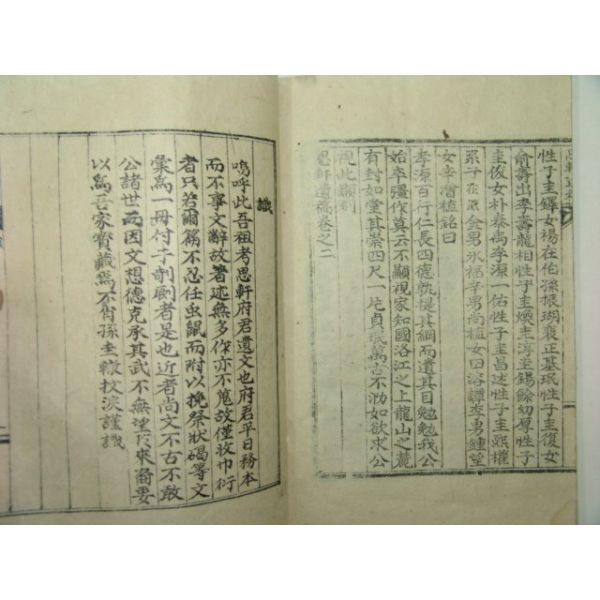 性子圭鐸女楊在佑孫振瑚襄正基珉性子圭復女
俞壽出李壽龍相性子圭煥圭洵圭錫餘幼厚性子
圭俊女朴泰尚李源一佑性子圭昌述性子圭熙權
系子在 金男永福辛男尚植女曰溶譚李男鍾望
女辛澮植銘曰
孝源百行仁長四德孰提其綱而遺其目勉勉我公
始卒彊作莫云不顯視家知國洛江之上龍山之麓
有封如堂其崇四尺一片貞珉萬古不泐如欲求公
視此顯刻
思軒遺稿卷之二
識
嗚呼此吾祖考思軒府君遺文也府君平日務本
而不事文辭故著述無多作亦不蒐故僅收巾衍
者只若爾篇不忍任虫鼠而附以挽祭狀碣等文
彙爲一冊付于剞劂者是也近者尚文不古不敢
公諸世而因文想德克承其武不無望於來裔要
以爲吾家寶藏焉不肖孫圭轍抆淚謹識